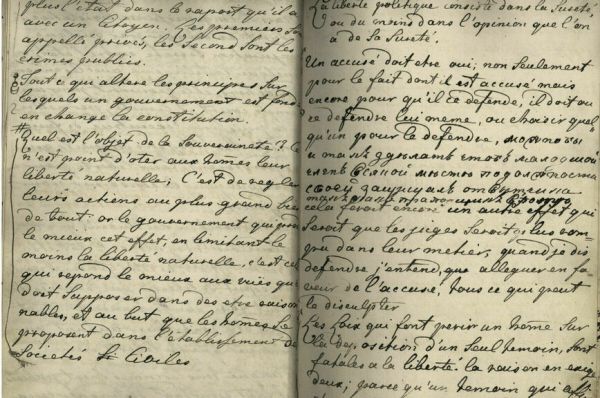 plus l'état dans le raport qu'il a
avec un Citoyen. Ces premiers son
appellé privés, les Second sont les
crimes publics.
Tout ce qui altere les principes Sur
lesquels un gouvernement est fondé
en change la constitution.
Quel est l'objet de la Souveraineté? Ce
n'est point d'oter aux homes leur
liberté naturelle; C'est de regler
leurs actions au plus grand bien
de tout. or le gouvernement qui prod
le mieux cet effet, en limitant le
moins la liberté naturelle, c'est celui
qui repond le mieux aux vuës que
doit Supposer dans des etre raison
nables, et au but que les homes Se
proposent dans l'établissement de
Societés Civiles
La liberté politique consiste dans la Sureté
ou du moins dans l'opinion que l'on
a de Sa Sureté.
Un accusé doit etre oui, non Seulement
pour le fait dont il est accusé mais
encore pour qu'il ce defende, il doit ou
ce defendre lui meme, ou choisir quel
qu'un pour le defendre,
своей
cela feroit encore un autre effet qui
Seroit que les juges Seroit plus
gru dans leur metier, quand je dis
defendre j'entend, que alleguer en fa
veur de l'accusé, tous ce qui peut
le disculpter
Les Loix qui font perir un home Sur
la deposition d'un Seul temoin, sont
fatales a la liberté. la raison en exige
deux; parce qu'un temoin qui affir